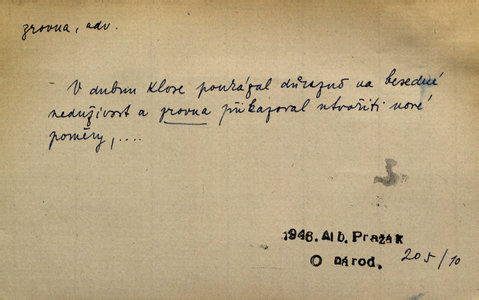 zrovna, adv.
V dubnu Klose poukázal důrazně na besedné
neduživost a zrovna přikazoval utvořiti nové
poměry, ....
1946. Alb. Pražák
O národ. 205/10